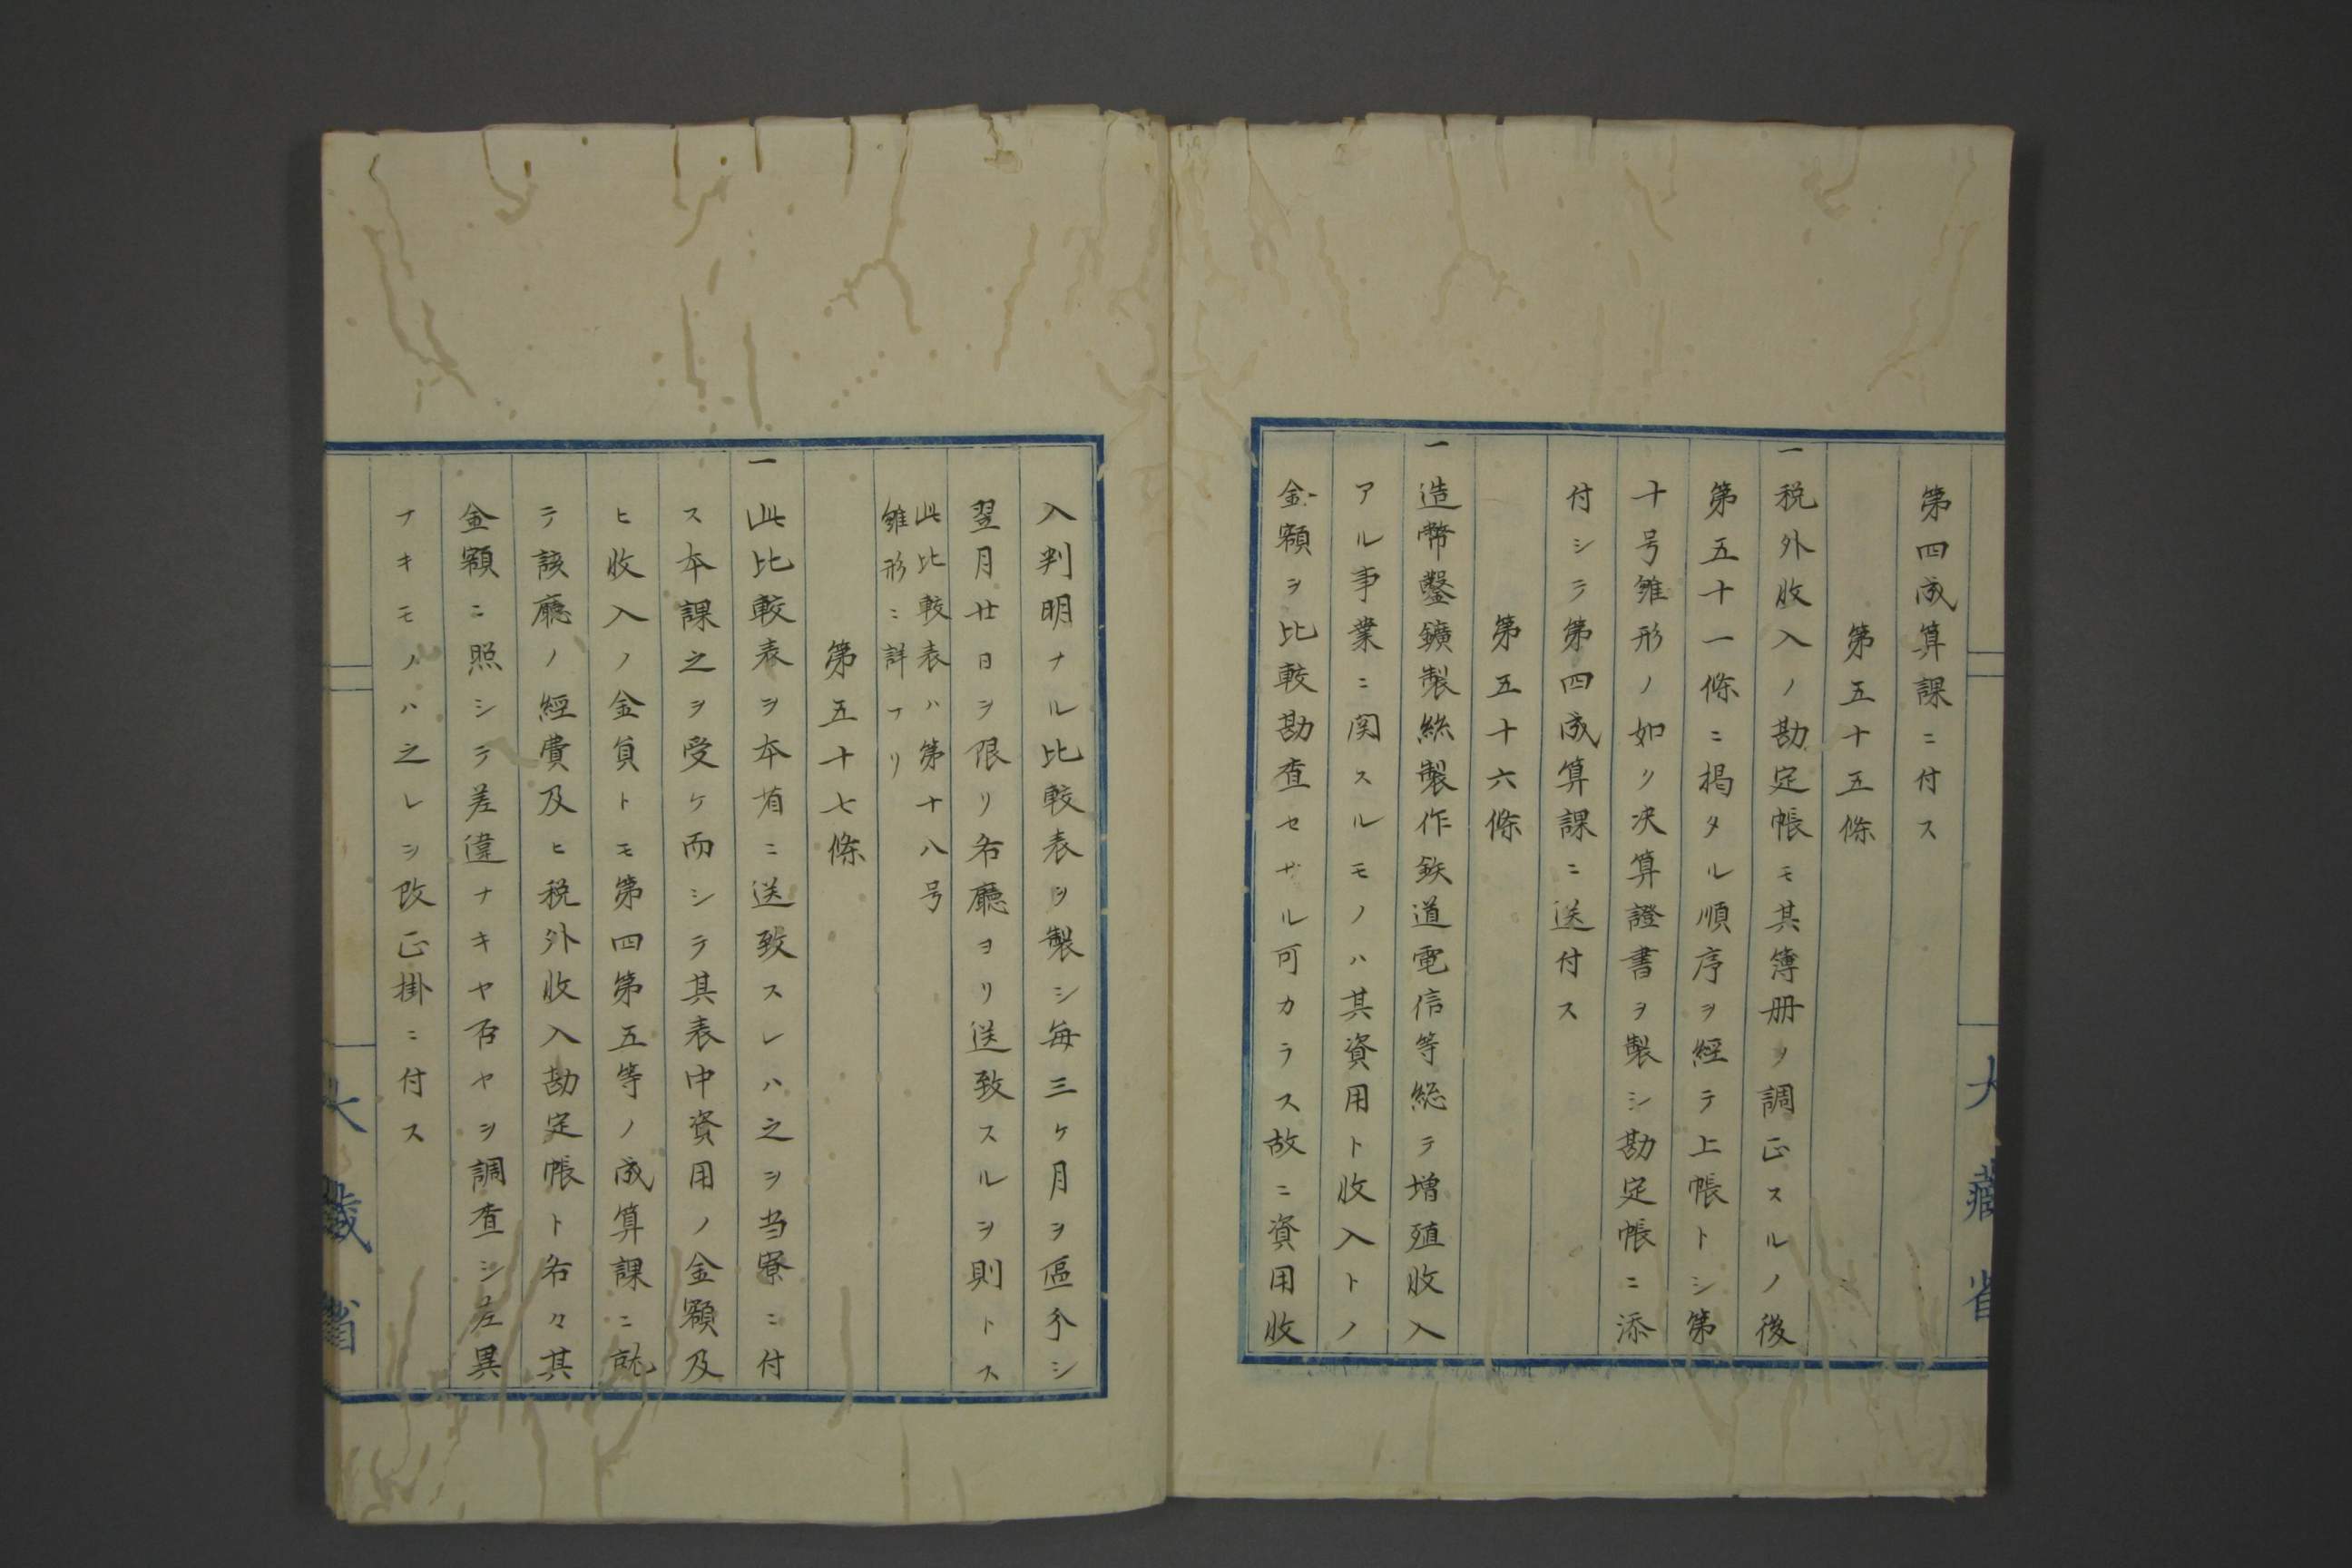 第四成算課ニ付ス
第五十五條
一税外收入ノ勘定帳モ其簿册ヲ調正スルノ後
第五十一條ニ掲タル順序ヲ經テ上帳トシ第
十号雛形ノ如ク决算證書ヲ製シ勘定帳ニ添
付シテ第四成算課ニ送付ス
第五十六條
一造幣鑿鑛製絲製作鉄道電信等総テ増殖收入
アル事業ニ関スルモノハ其資用ト收入トノ
金額ヲ比較勘査セサル可カラス故ニ資用收
大藏省
入判明ナル比較表ヲ製シ毎三ケ月ヲ區分シ
翌月廿日ヲ限リ各廳ヨリ送致スルヲ則トス
此比較表ハ第十八号
雛形ニ詳ナリ
第五十七條
一此比較表ヲ本省ニ送致スレハ之ヲ当寮ニ付
ス本課之ヲ受ケ而シテ其表中資用ノ金額及
ヒ收入ノ金員トモ第四第五等ノ成算課ニ就
テ該廳ノ經費及ヒ税外收入勘定帳ト各々其
金額ニ照シテ差違ナキヤ否ヤヲ調査シ差異
ナキモノハ之レヲ改正掛ニ付ス
大藏省